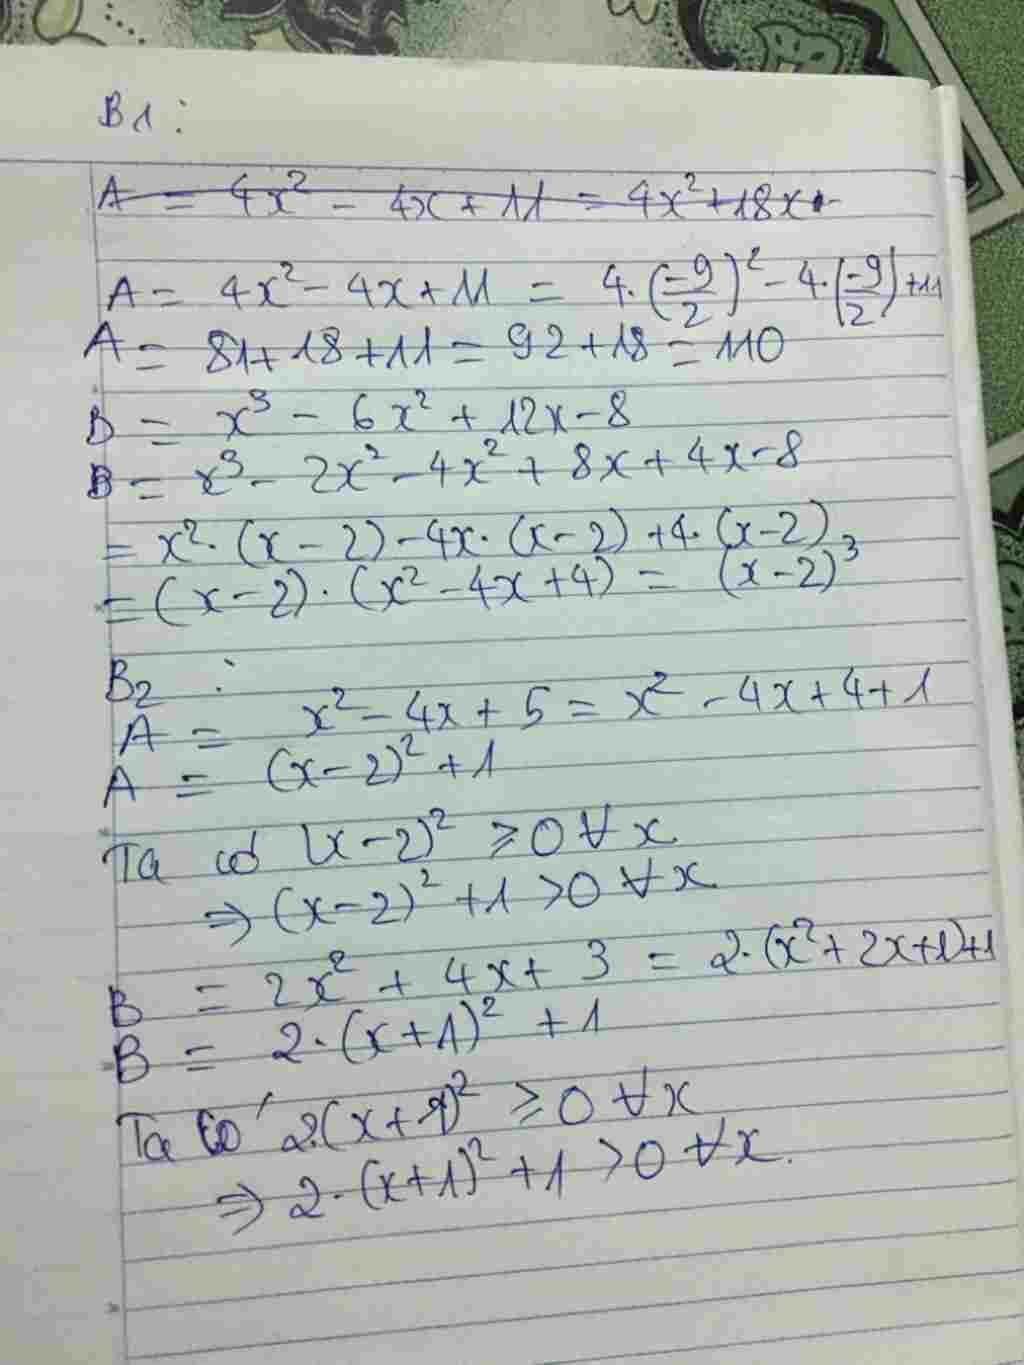 B1:
A = 4x² - 4x + 11 = 4x² + 18x +
A = 4x² - 4x + 11 = 4.(-9/2)² - 4.(-9/2) + 11
A = 81 + 18 + 11 = 92 + 18 = 110
B = x³ - 6x² + 12x - 8
B = x³ - 2x² - 4x² + 8x + 4x - 8
= x².(x - 2) - 4x.(x - 2) + 4.(x - 2)
= (x - 2).(x² - 4x + 4) = (x - 2)³
B2 :
A = x² - 4x + 5 = x² - 4x + 4 + 1
A = (x - 2)² + 1
Ta có (x - 2)² ⩾ 0 ∀ x
⇒ (x - 2)² + 1 > 0 ∀ x
B = 2x² + 4x + 3 = 2.(x² + 2x + 1) + 1
B = 2.(x + 1)² + 1
Ta có 2.(x + 1)² ⩾ 0 ∀ x
⇒ 2.(x + 1)² + 1 > 0 ∀ x.